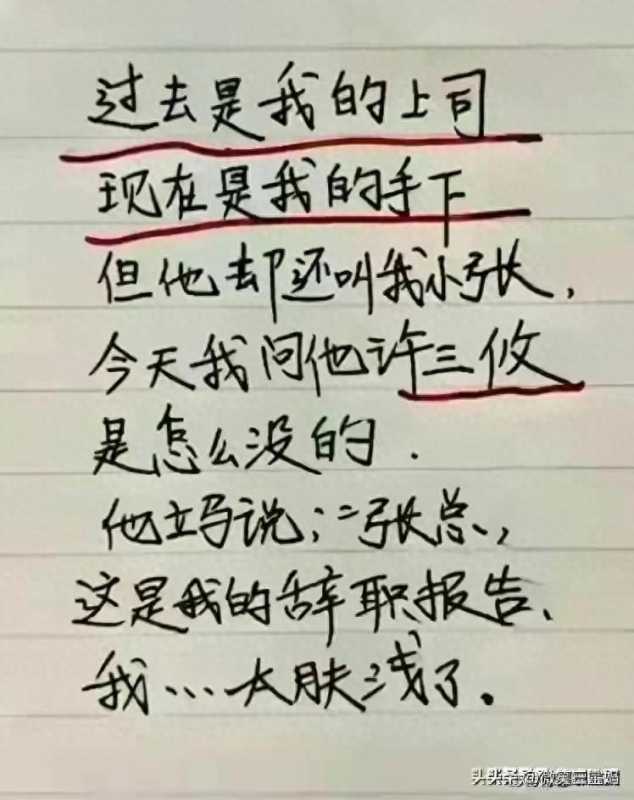 过去是我的上司
现在是我的手下
但他却还叫我小张,
今天我问他许三攸
是怎么没的.
他立马说:二张总、,
这是我的辞职报告、
我…太肤浅了。